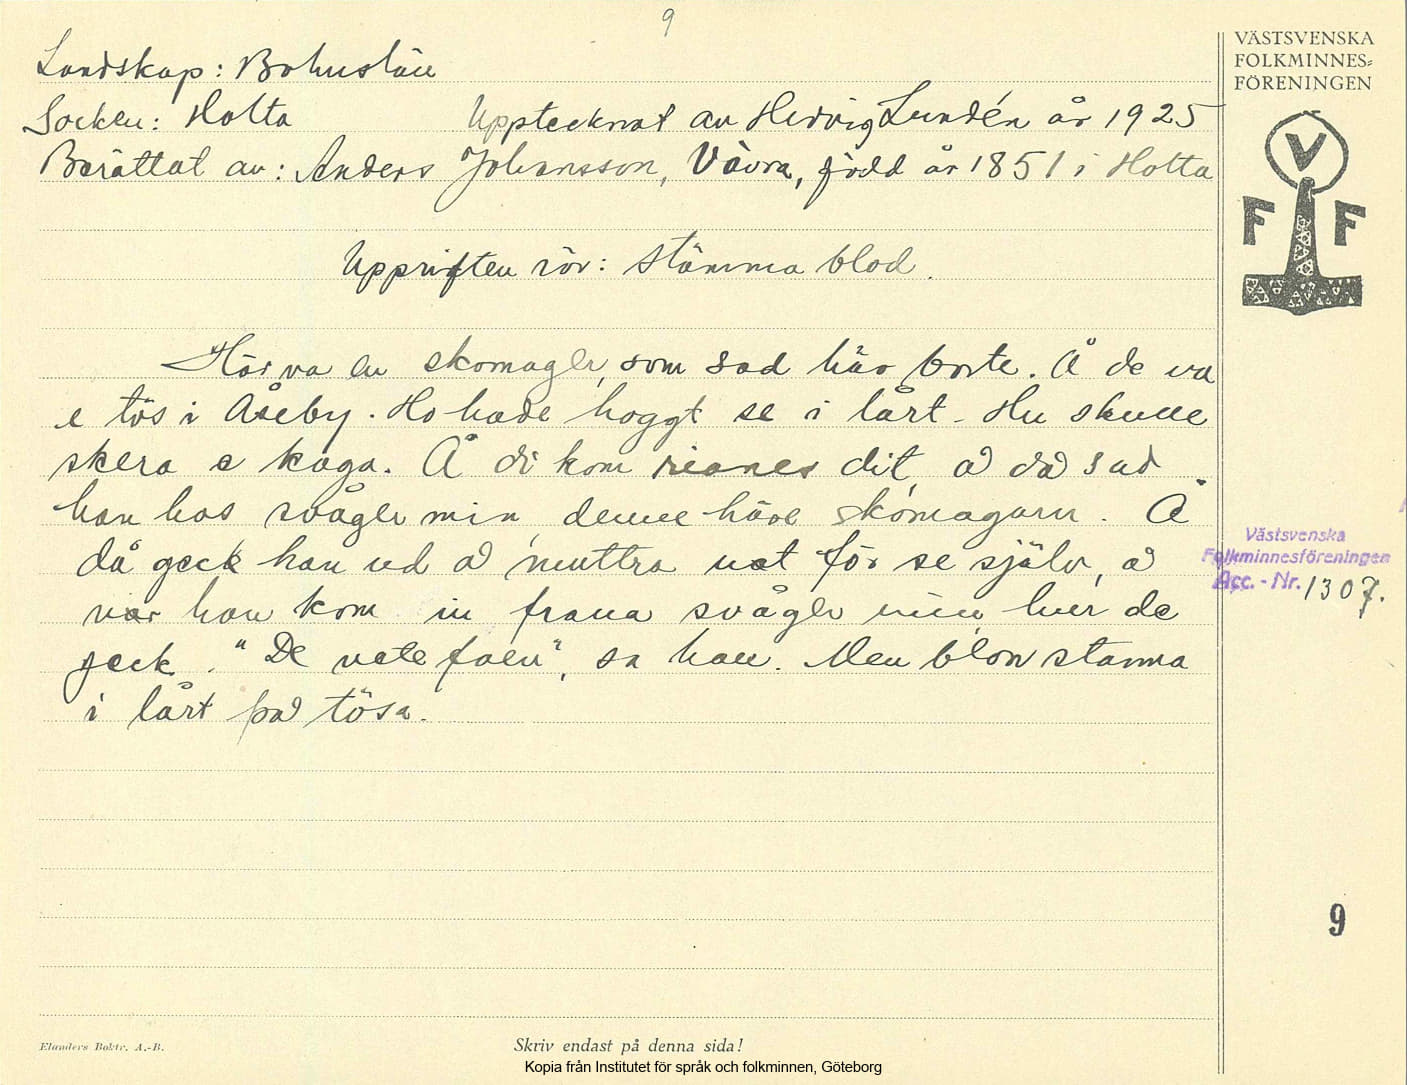 9
Landskap: Bohuslän
Socken: Holta Upptecknat av Hedvig Lundén år 1925
Berättat av: Anders Johansson, Vävra, född år 1851 i Holta
Uppgiften rör: stämma blod.
Här va en skomager, som sad här borte. Å de va
e tös i Åseby. Ho hade hoggt se i lårt. Hu skulle
skera e kaga. Å di kom dit, å då sad
han hos svåger min, denne häre skomagarn. Å
då geck han ud å muttra nat för se själv, å
när han kom in fraua svåger min hur de
geck. "De vete faen", sa han. Men blon stanna
i lårt på tösa.
VÄSTSVENSKA
FOLKMINNES-
FÖRENINGEN
V
F F
Västsvenska
Folkminnesföreningen
Acc. - Nr. 1307.
9
Elanders Boktr. A.-B.
Skriv endast på denna sida!
Kopia från Institutet för språk och folkminnen, Göteborg